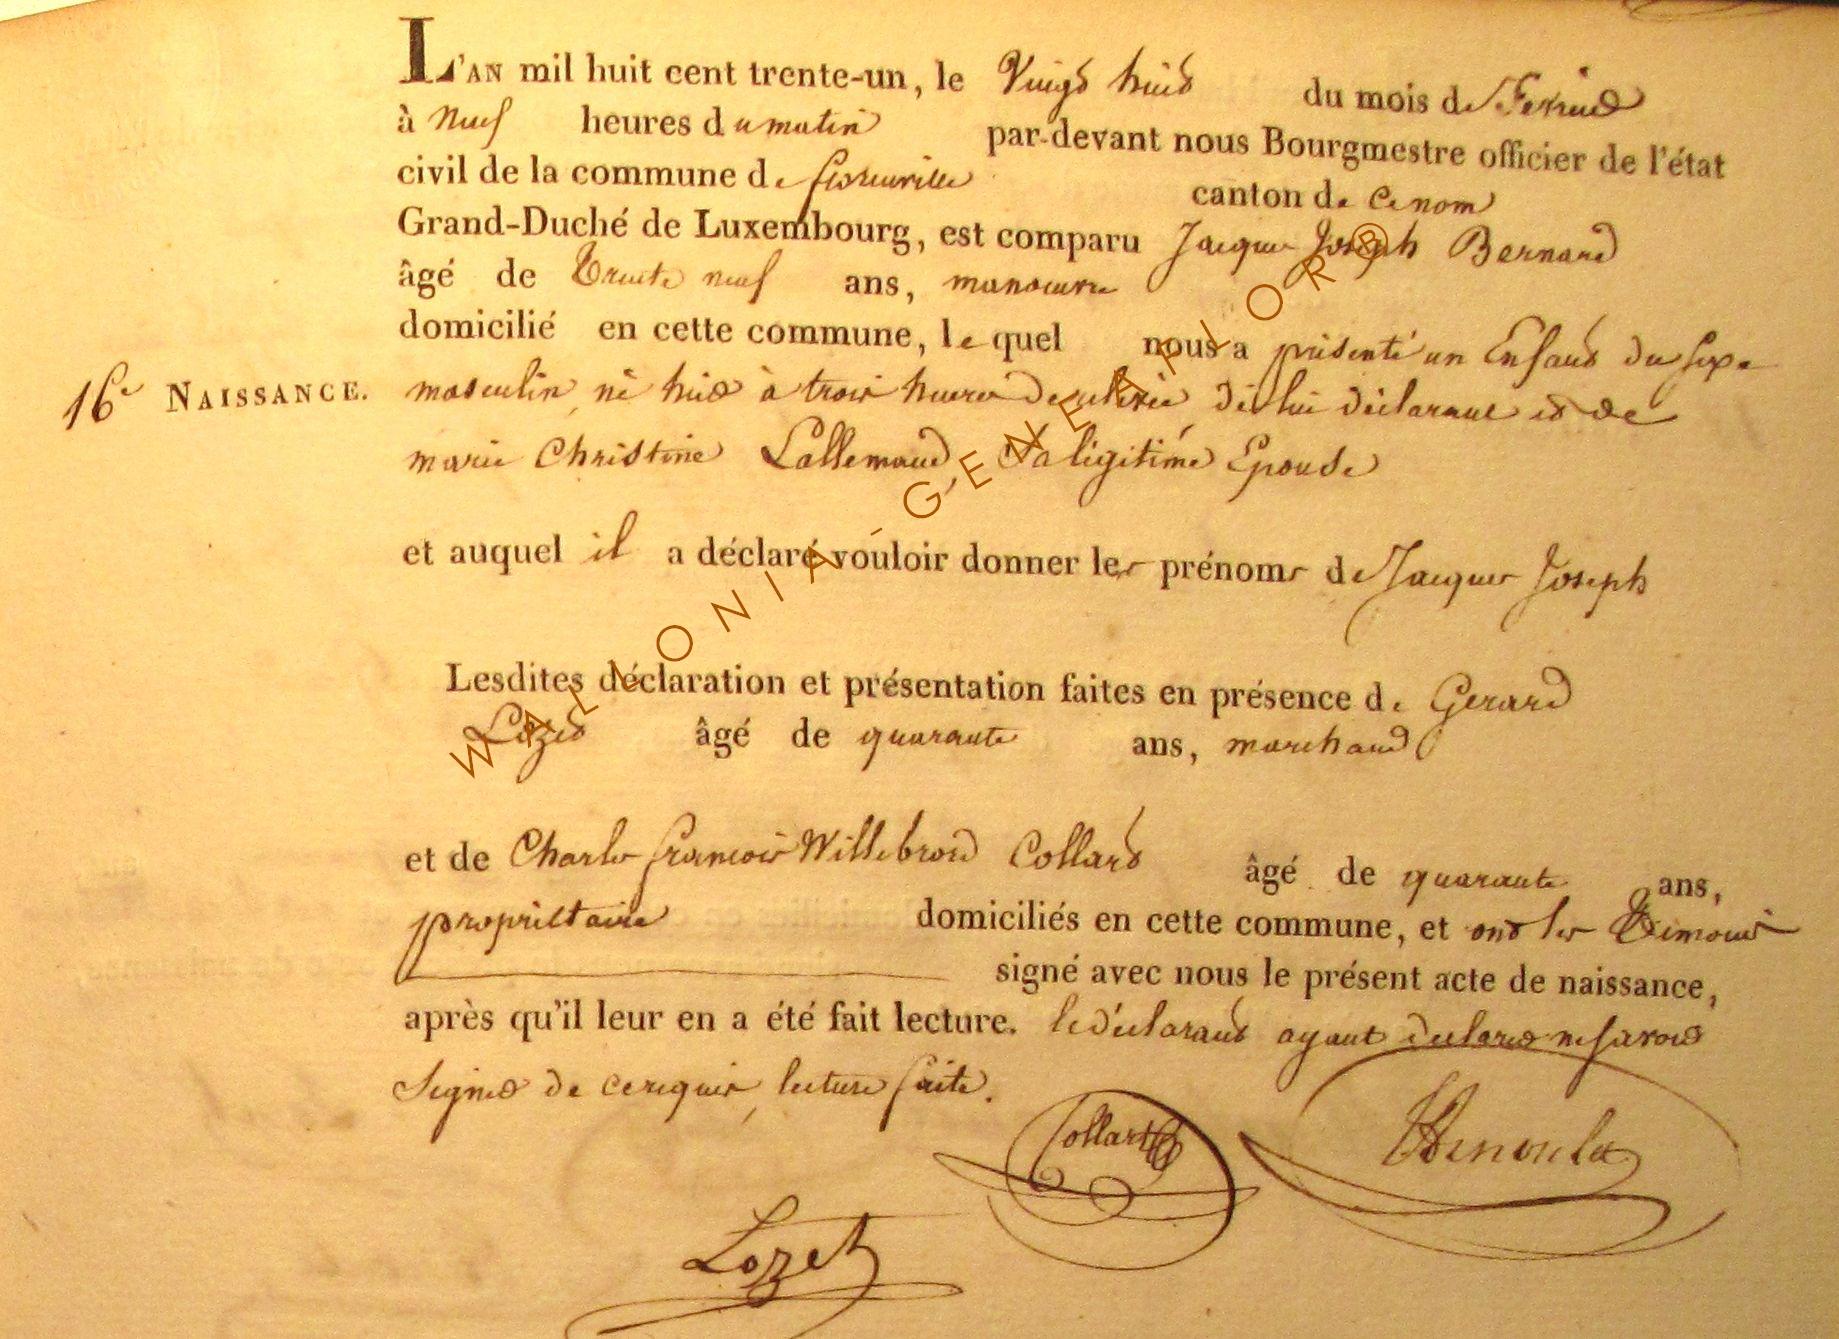 L'AN mil huit cent trente-un, le Vingt huit du mois de Fevrier
à Neuf heures du matin par-devant nous Bourgmestre officier de l'état
civil de la commune de florenville canton de ce nom
Grand-Duché de Luxembourg, est comparu Jacques Joseph Bernard
âgé de Trente neuf ans, manoeuvre
domicilié en cette commune, lequel nous a présenté un Enfant du sexe
16e NAISSANCE. masculin, né hier à trois heures de relevée de lui déclarant et de
marie Christine Lallemand, Sa légitime Epouse
et auquel il a déclaré vouloir donner les prénoms de Jacques Joseph
Lesdites déclaration et présentation faites en présence de Gerard
Lozet âgé de quarante ans, marchand
et de Charles francois Willebrord Collard âgé de quarante ans,
propriétaire domiciliés en cette commune, et ont les Témoins
signé avec nous le présent acte de naissance,
après qu'il leur en a été fait lecture. le déclarant ayant declaré ne savoir
Signer de ce requis, lecture faite.
Collard
Lozet
WALLONIA-GENEAPIORB®